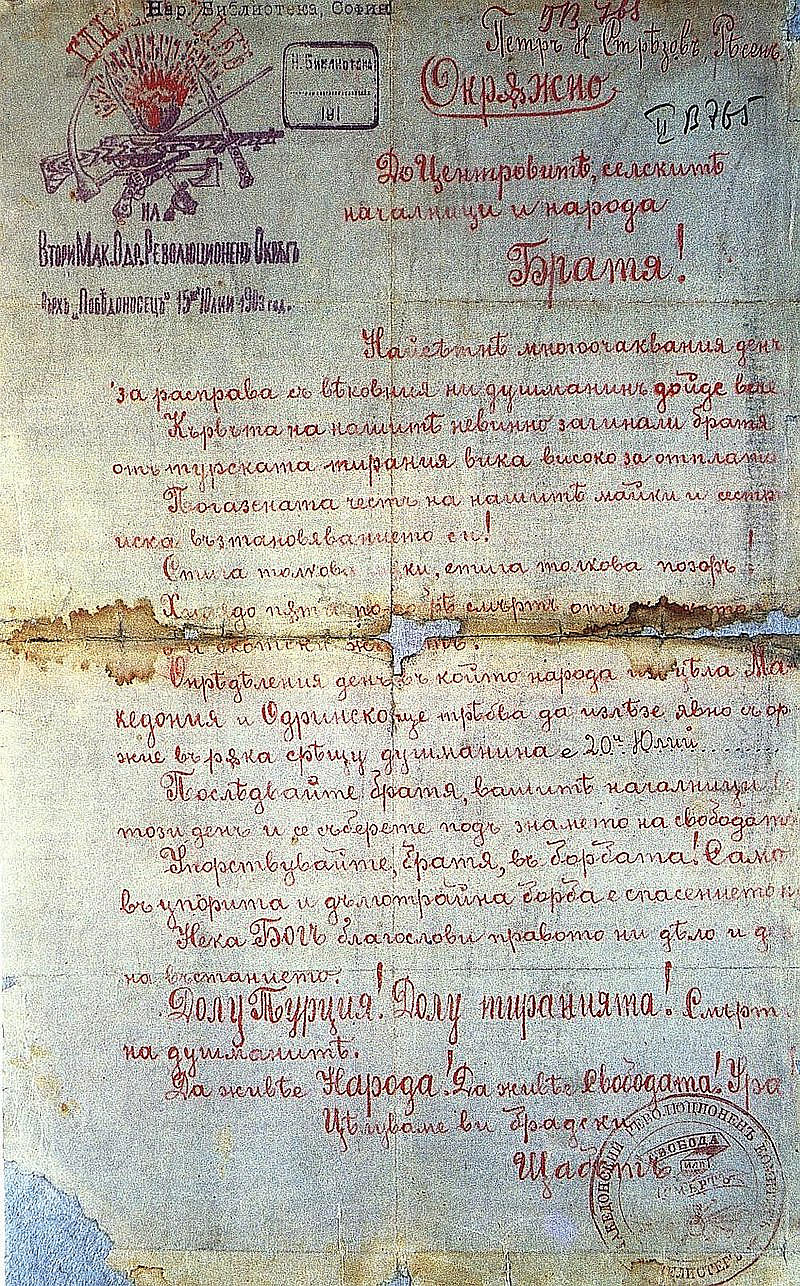 Нар. Библиотека, София
Н. Библиотека
191
Петръ Н. Стрѣзовъ, Рѣсенъ
Окрѫжно
II В 765
ГЛАВНИЯ ЩАБЪ
НА
Втори Мак. Одр. Революционенъ Окрѫгъ
Върхъ „Повѣдоносецъ" 15ий Юлий 1903 год.
До Центровитѣ, селскитѣ
началници и народа
Братя!
Найсѣтнѣ многоочаквания день
за расправа съ вѣковния ни душманинъ дойде вече
Кървьта на нашитѣ невинно загинали братя
отъ турската тирания вика високо за отплата
Погазената честь на нашитѣ майки и сестри
иска възтановяванието си!
Стига толкова ки, стига толкова позоръ!
до пѫти по смърть отъ
и скотски
Опрѣдѣления день въ който народа ни цѣла Ма-
кедония и Одринско ще трѣбва да излѣзе явно съ орѫ-
жие въ рѫка срѣщу душманина е 20й Юлий........
Послѣдвайте братя, вашитѣ началници
този день и се съберете подъ знамето на свободата
Упорствувайте, братя, въ борбата! Само
въ упорита и дълготрайна борба е спасението н
Нека Богъ благослови правото ни дѣло и де
на въстанието.
Долу Турция! Долу тиранията! Смърть
на душманитѣ.
Да живѣе Народа! Да живѣе Свободата! Ура
Цѣлуваме ви брадски
Щабътъ
РЕВОЛЮЦИОНЕНЪ КОМИТЕТЪ
СВОБОДА
ИЛИ
СМЕРТЬ